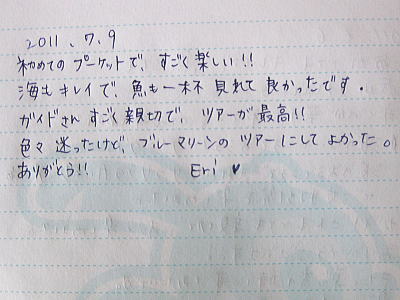 2011.7.9
初めてのプーケットで、すごく楽しい!!
海もキレイで、魚も一杯見れて良かったです。
ガイドさんすごく親切で、ツアーが最高!!
色々迷ったけど、ブルーマリーンのツアーにしてよかった。
ありがとう!! Eri ♥